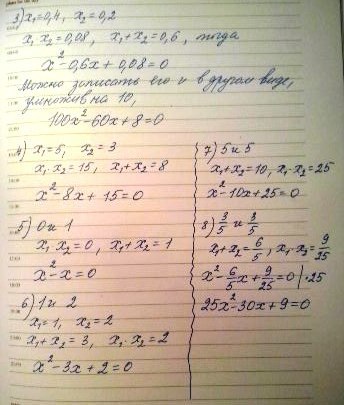 3) x₁=0,4, x₂=0,2
x₁ x₂=0,08, x₁+x₂=0,6, тогда
x²-0,6x+0,08=0
Можно записать его и в другом виде,
умножив на 10,
100x²-60x+8=0
4) x₁=5, x₂=3
x₁·x₂=15, x₁+x₂=8
x²-8x+15=0
5) 0 и 1
x₁·x₂=0, x₁+x₂=1
x²-x=0
6) 1 и 2
x₁=1, x₂=2
x₁+x₂=3, x₁·x₂=2
x²-3x+2=0
7) 5 и 5
x₁+x₂=10, x₁·x₂=25
x²-10x+25=0
8) 3/5 и 3/5
x₁+x₂=6/5, x₁·x₂=9/25
x²-6/5x+9/25=0 |·25
25x²-30x+9=0